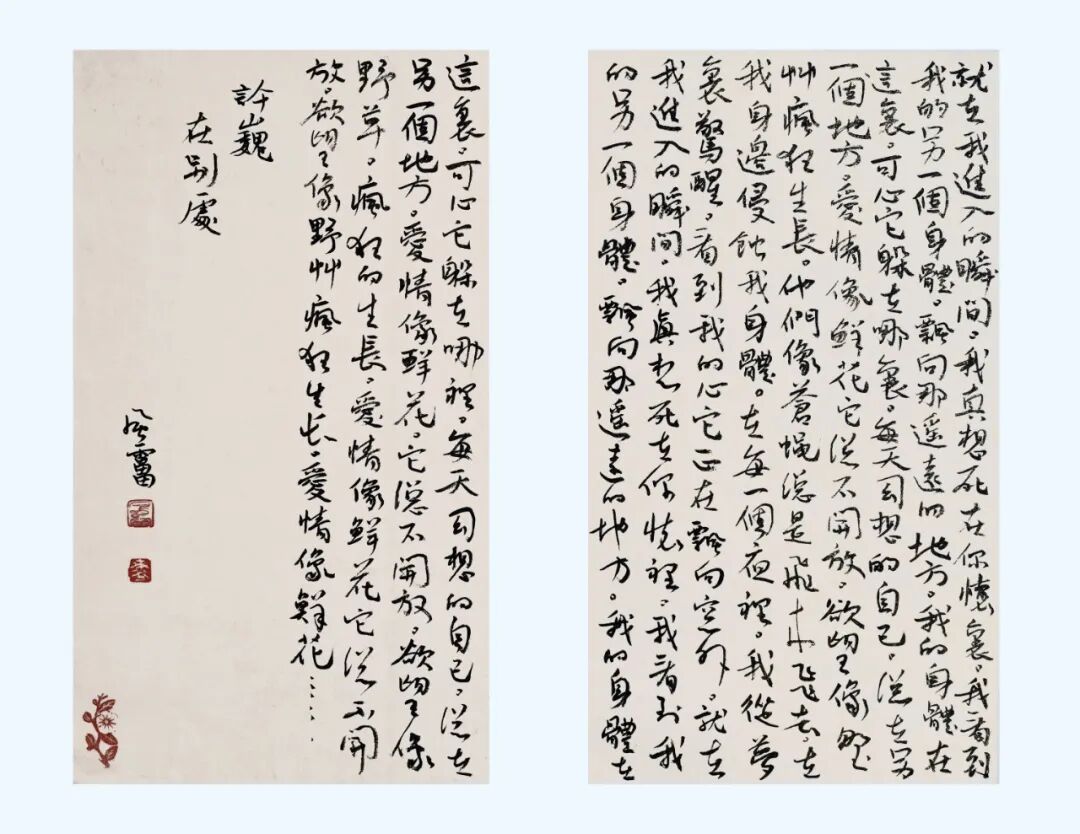 就在我進入的瞬間。我真想死在你懷裏。我看到
我的另一個身體。飄向那遥遠的地方。我的身體在
這裏。可心它躲在哪裏。每天幻想的自己。總在另
一個地方。愛情像鮮花它總不開放。欲望像野
艸瘋狂生長。他們像蒼蝇總是飛来飞去。在
我身邊侵蝕我身體。在每一個夜裡。我從夢
裏驚醒。看到我的心它正在飄向窓外。就在
我進入的瞬间。我真想死在你懷裡。我看到我
的另一個身體。飄向那遥遠的地方。我的身體在
這裏。可心它躲在哪裡。每天幻想的自己。總在
另一個地方。愛情像鮮花。它總不開放。欲望像
野草。瘋狂的生長。愛情像鮮花它總不開
放。欲望像野艸瘋狂生长。愛情像鮮花……
許巍
在别處
風雷